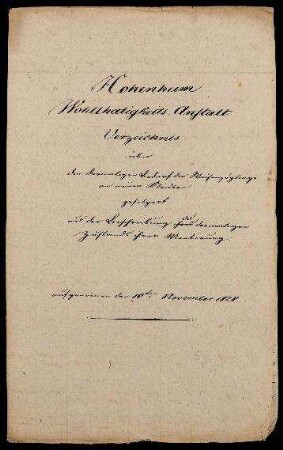 Hohenheim
Wohlthätigkeits Anstalt
Verzeichnis
über
den dermaligen Bedarf der Waisenzöglinge
an neuen Kleider
gefolgert
aus der Beschreibung des dermaligen
Zustands ihrer Montierung
aufgenommen den 10ten November 1828